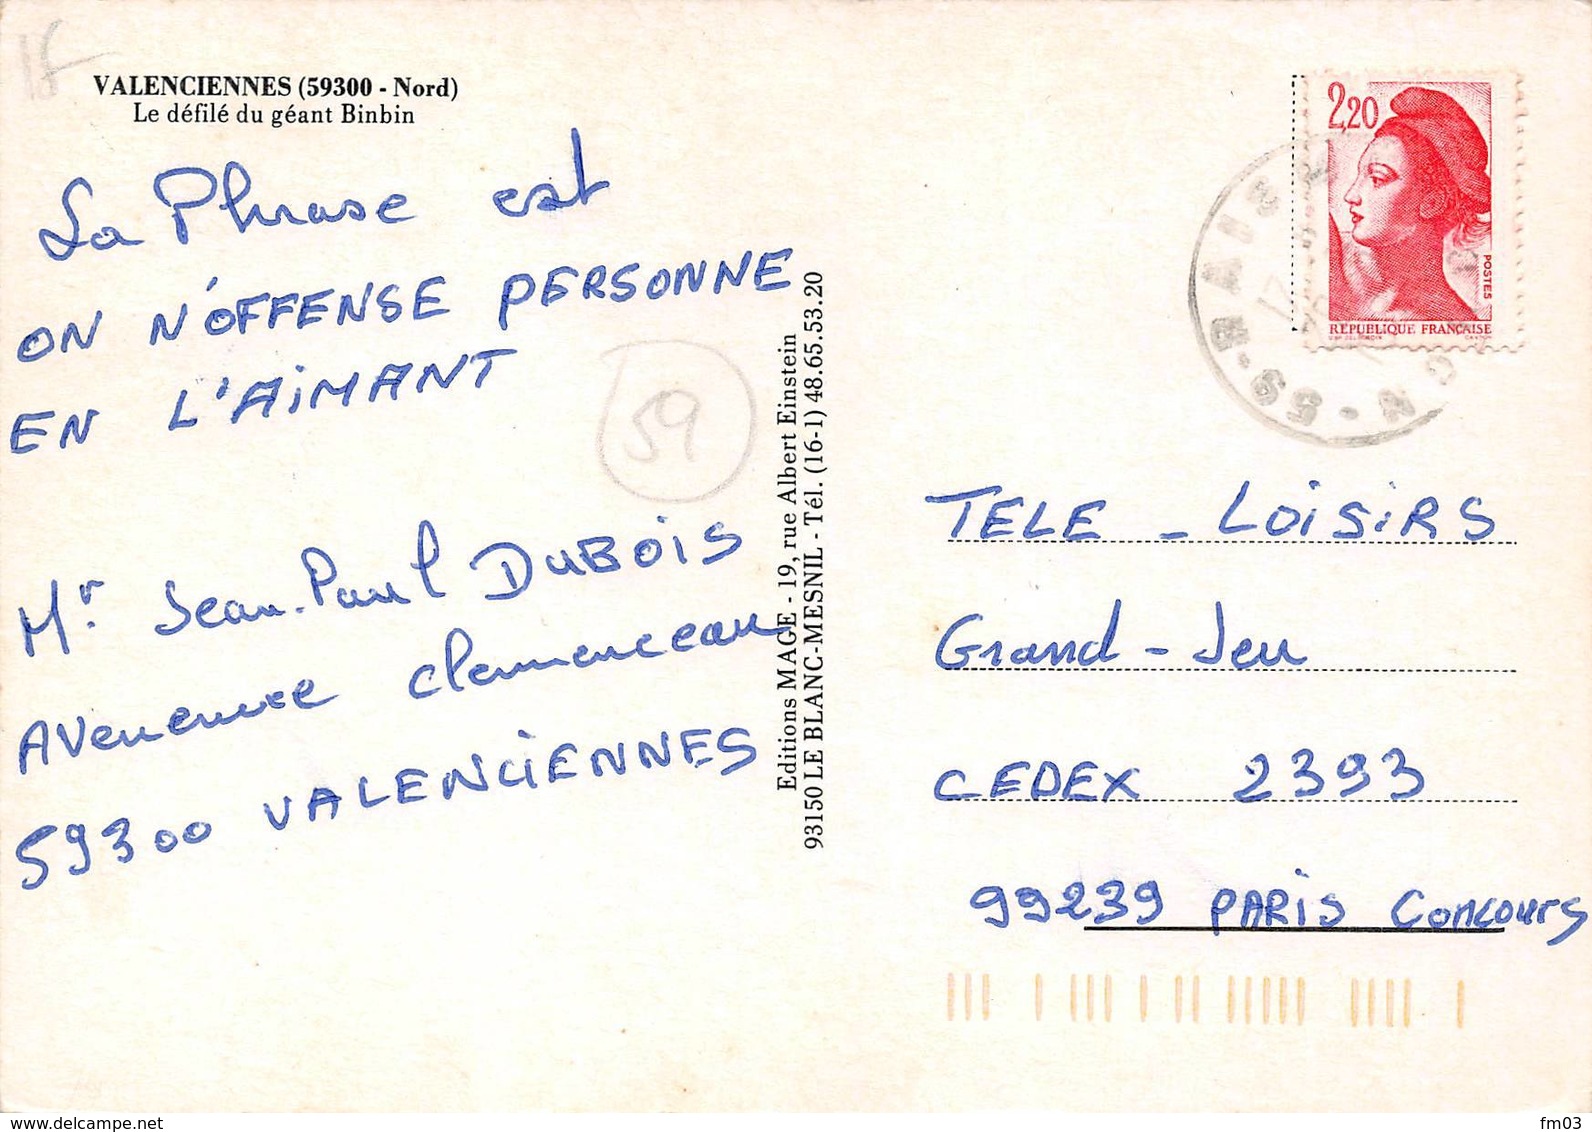 VALENCIENNES (59300 - Nord)
Le défilé du géant Binbin
La Phrase est
ON N'OFFENSE PERSONNE
EN L'AiMANT
59
Mr Jean-Paul DUBOiS
AVenenue clemenceau
59300 VALENCIENNES
Editions MAGE - 19, rue Albert Einstein
93150 LE BLANC-MESNIL - Tél. (16-1) 48.65.53.20
2,20
POSTES
REPUBLIQUE FRANÇAISE
TELE - LOiSiRS
Grand - Jeu
CEDEX 2393
99239 PARiS Concours
fm03